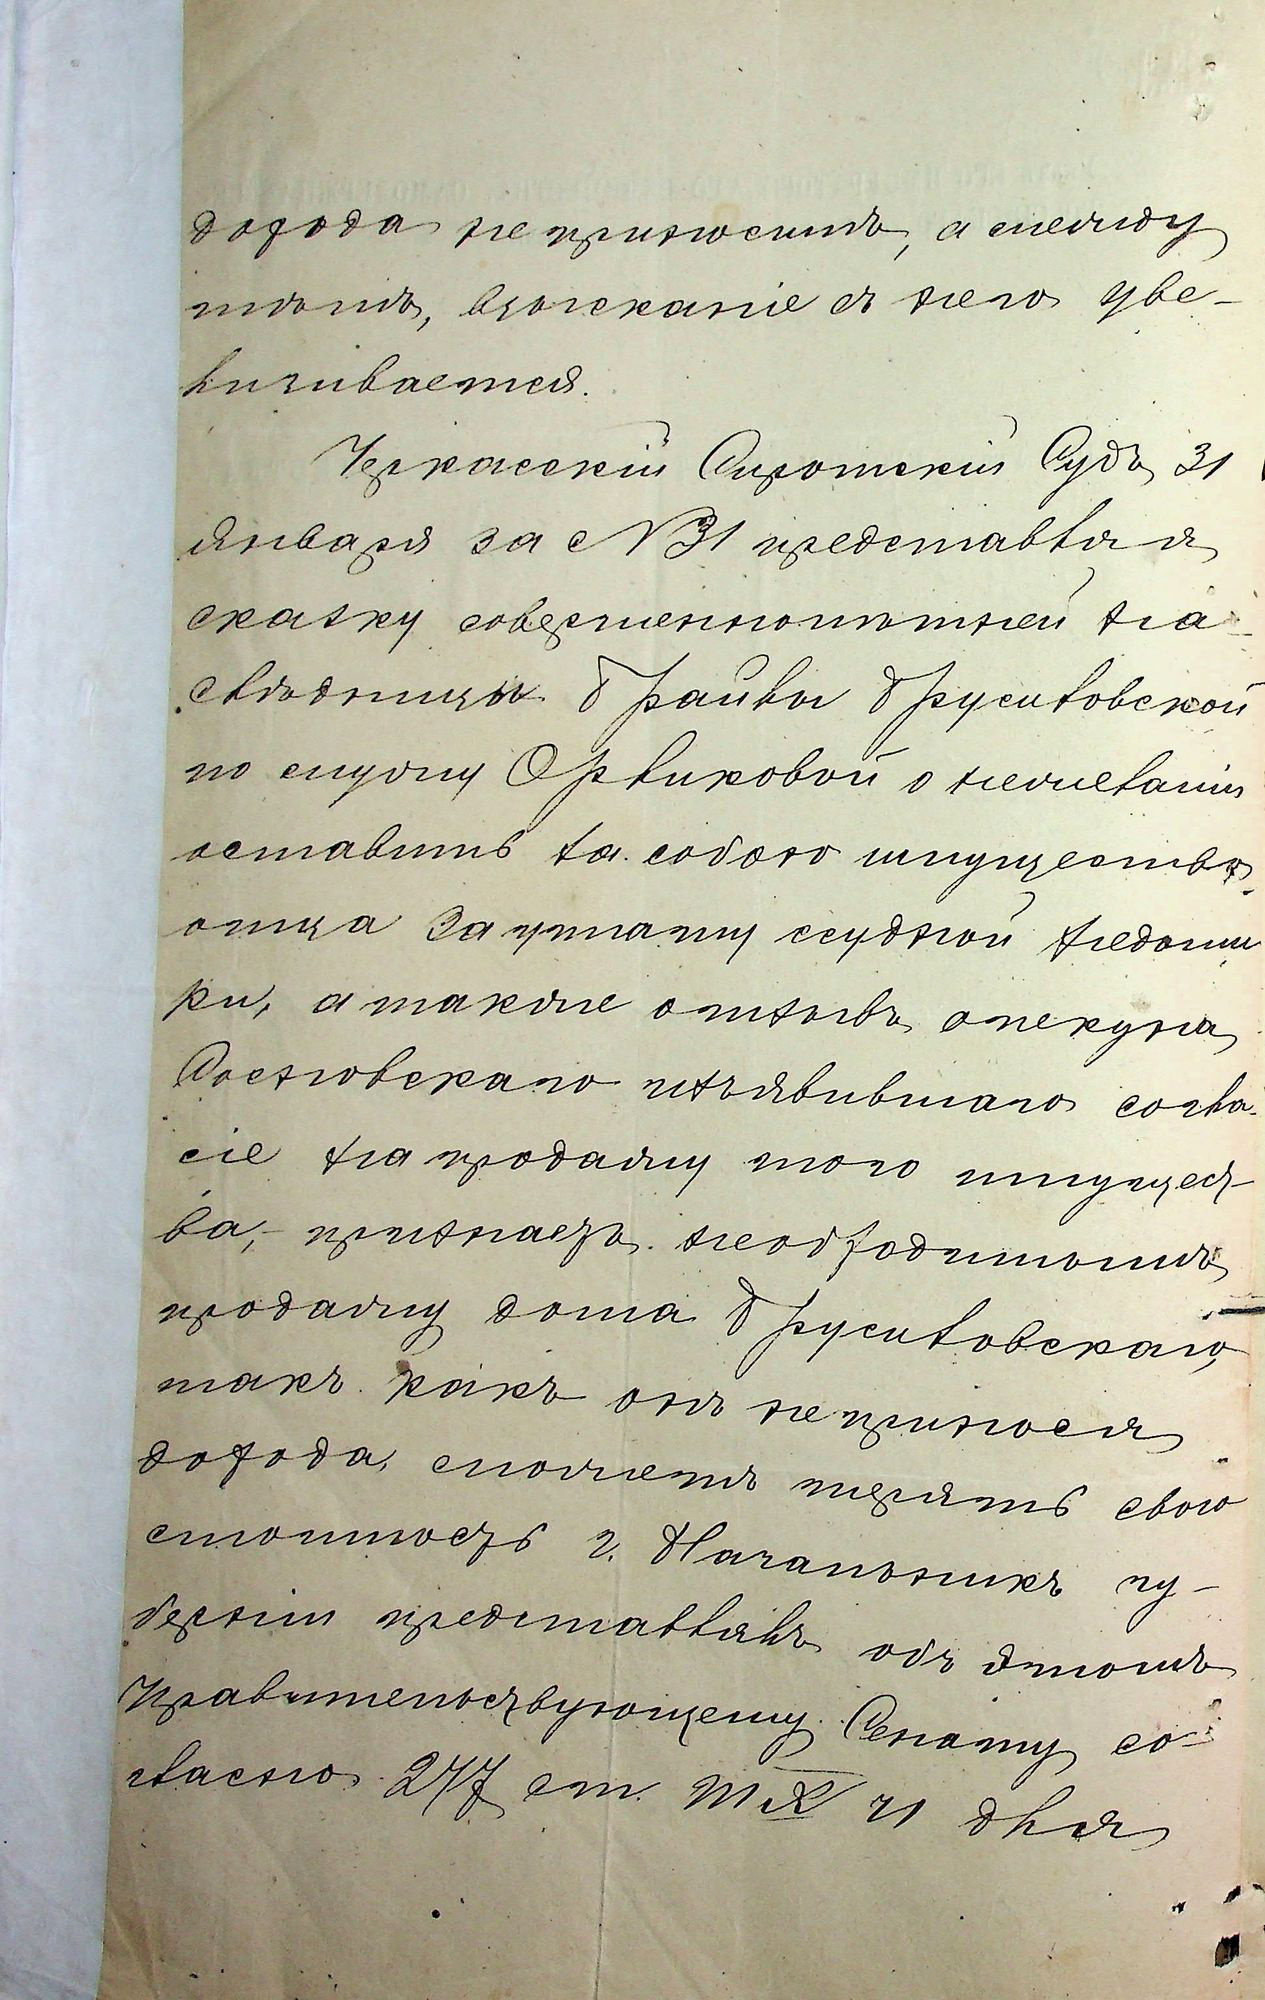 дохода не приноситъ, а между
тѣмъ, взысканіе съ него уве-
личивается.
Черкасскій Сиротскій Судъ, 31
января за № 31 представляя
сказку совершеннолѣтней на-
слѣдницы Фрайвы Друсиловской
по мужу Орликовой о нежеланіи
оставить за собою имущество
отца за уплату ссудной недоим
ки, а также отзывъ опекуна
Сосновскаго изъявившаго согла-
сіе на продажу того имущест-
ва, признаетъ необходимымъ
продажу дома Друсиловскаго,
такъ какъ онъ не принося
дохода, можетъ терять свою
стоимость г. Начальникъ гу-
берніи представляя объ этомъ
Правительствующему Сенату со-
гласно 277 ст. т X ч 1 для